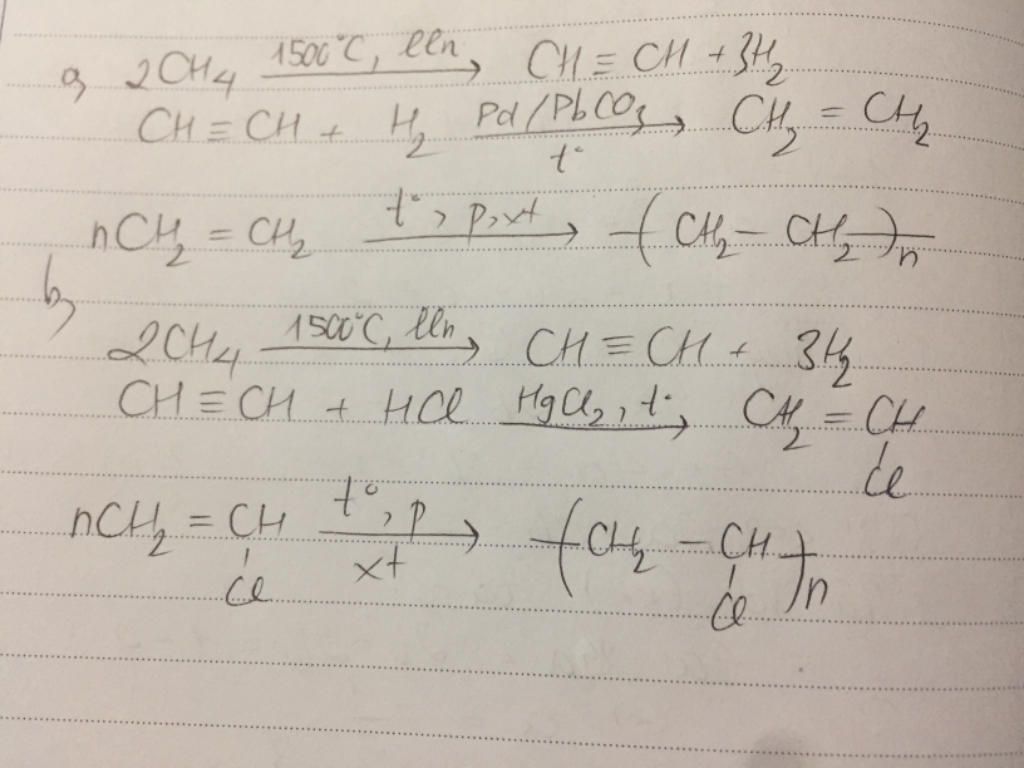 a, 2CH4 1500°C, lln → CH ≡ CH + 3H2
CH ≡ CH + H2 Pd/PbCO3 t° → CH2 = CH2
nCH2 = CH2 t°, p, xt → -(CH2 - CH2)-n
b,
2CH4 1500°C, lln → CH ≡ CH + 3H2
CH ≡ CH + HCl HgCl2, t° → CH2 = CH
Cl
nCH2 = CH t°, p xt → -(CH2 - CH)-n
Cl Cl